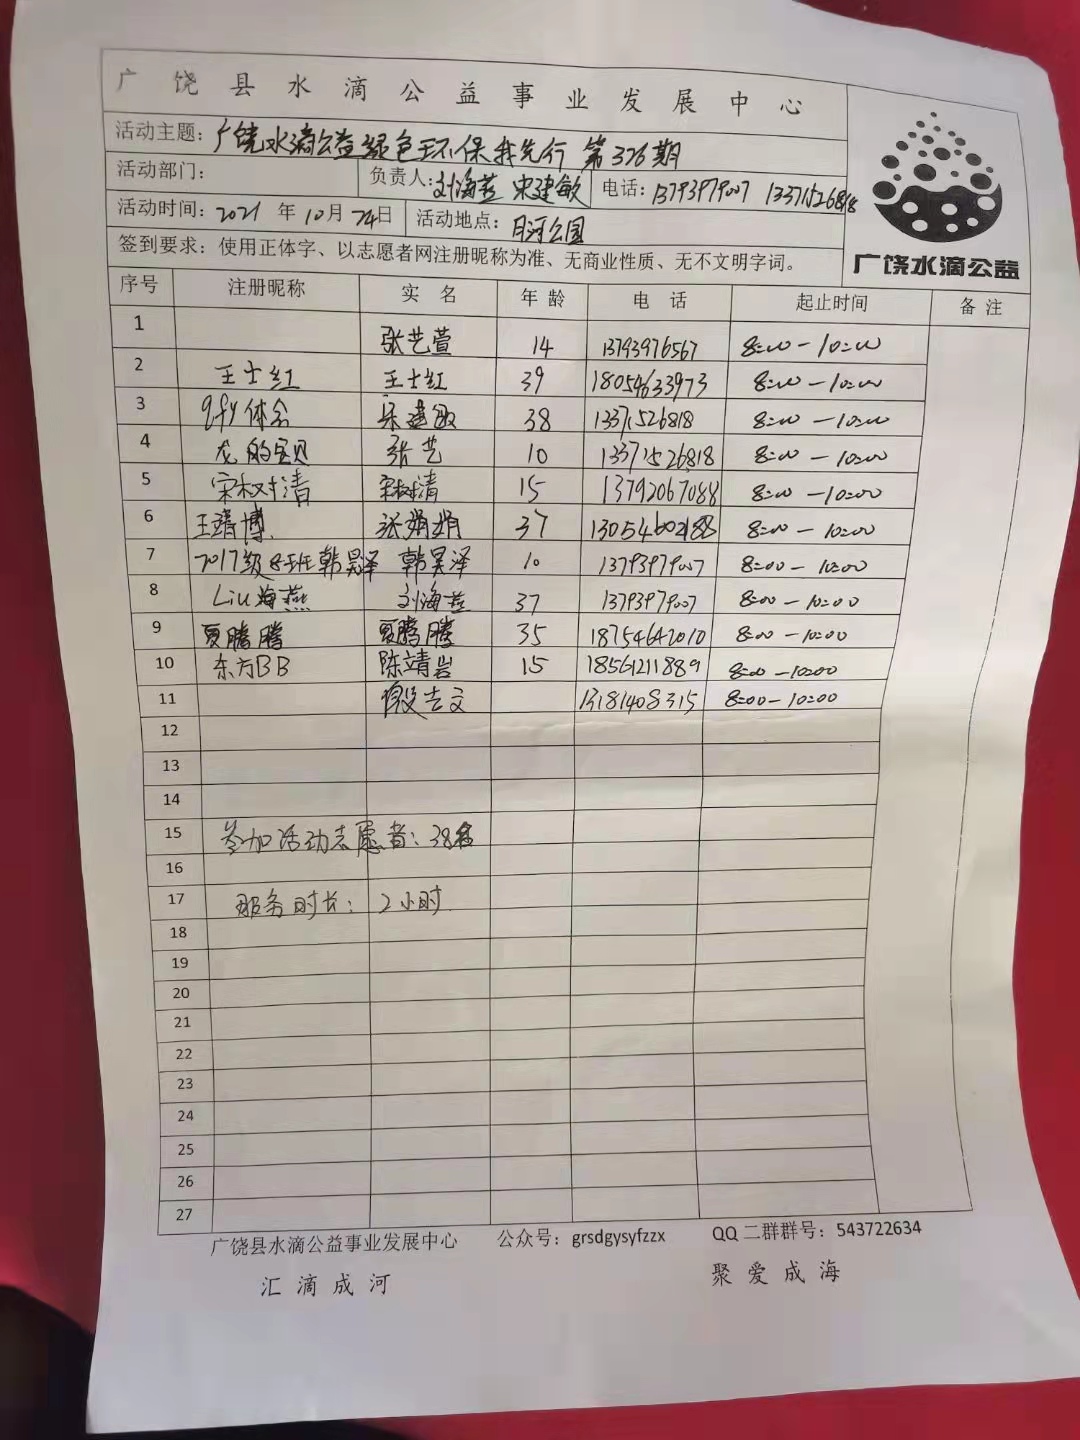 广饶县水滴公益事业发展中心
活动主题：广饶水滴公益绿色环保我先行 第376期
活动部门： 负责人：刘海燕 宋建敏 电话：13793979007 13371526818
活动时间：2021年10月24日 活动地点：月河公园
签到要求：使用正体字、以志愿者网注册昵称为准、无商业性质、无不文明字词。
广饶水滴公益
序号 注册昵称 实名 年龄 电话 起止时间 备注
1 张艺萱 14 13793976567 8:00-10:00
2 王士红 王士红 39 18054633973 8:00-10:00
3 qfy体会 宋建敏 38 13371526818 8:00-10:00
4 龙的宝贝 张艺 10 13371526818 8:00-10:00
5 宋树清 宋树清 15 13792067088 8:00-10:00
6 王靖博 张娟娟 37 13054602188 8:00-10:00
7 2017级8班韩昊泽 韩昊泽 10 13793979007 8:00-10:00
8 Liu海燕 刘海燕 37 13793979007 8:00-10:00
9 夏腾腾 夏腾腾 35 18754642010 8:00-10:00
10 东方BB 陈靖岩 15 18561211889 8:00-10:00
11 吉文 13181408315 8:00-10:00
12
13
14
15 参加活动志愿者：38名
16
17 服务时长：2小时
18
19
20
21
22
23
24
25
26
27
广饶县水滴公益事业发展中心 公众号：grsdgysyfzzx QQ二群群号：543722634
汇滴成河 聚爱成海